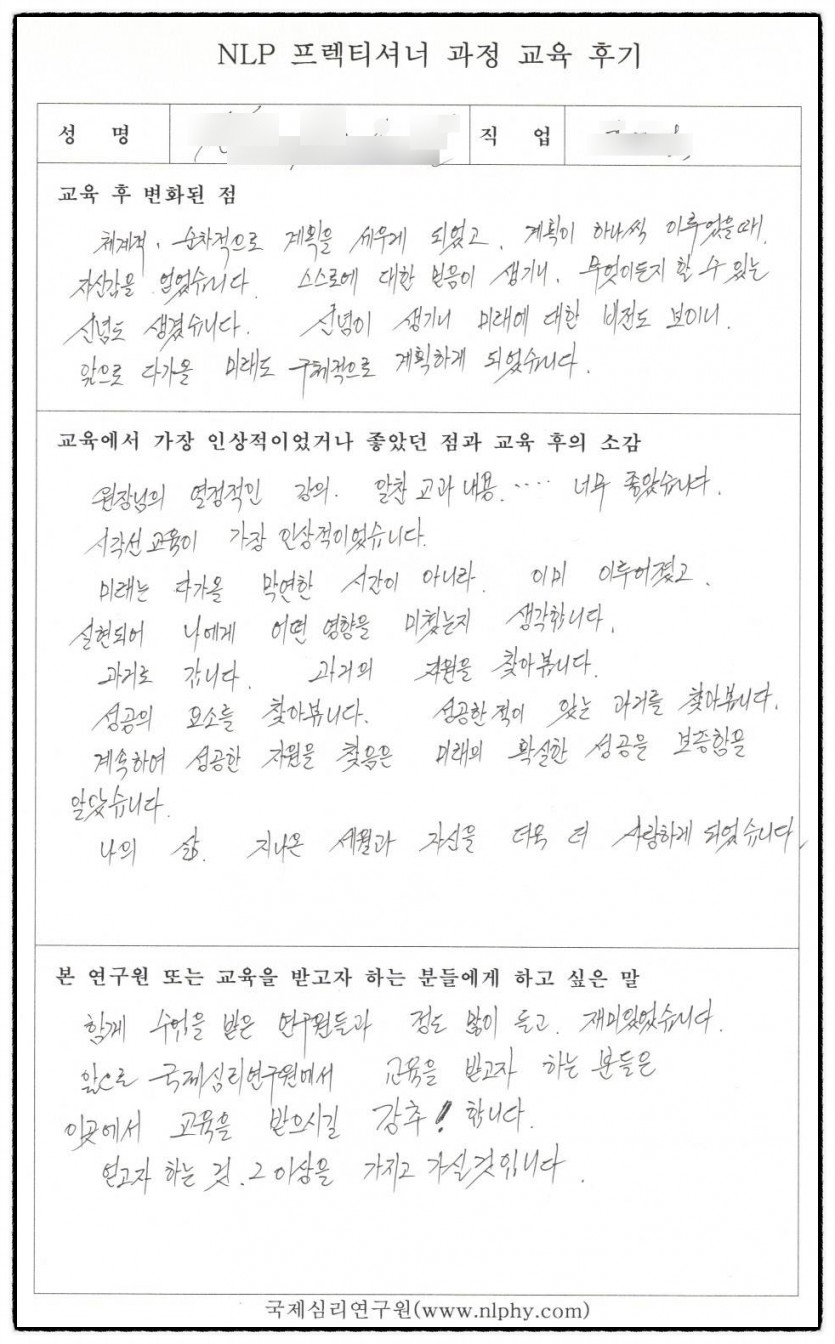 NLP 프렉티셔너 과정 교육 후기
성 명
직 업
교육 후 변화된 점
체계적, 순차적으로 계획을 세우게 되었고, 계획이 하나씩 이루었을때,
자신감을 얻었습니다. 스스로에 대한 믿음이 생기니, 무엇이든지 할 수 있는
신념도 생겼습니다. 신념이 생기니 미래에 대한 비전도 보이니,
앞으로 다가올 미래도 구체적으로 계획하게 되었습니다.
교육에서 가장 인상적이었거나 좋았던 점과 교육 후의 소감
원장님의 열정적인 강의. 알찬 교과내용..... 너무 좋았습니다.
시각선 교육이 가장 인상적이었습니다.
미래는 다가올 막연한 시간이 아니라. 이미 이루어졌고,
실현되어 나에게 어떤 영향을 미쳤는지 생각합니다.
과거로 갑니다. 과거의 자원을 찾아봅니다.
성공의 요소를 찾아봅니다. 성공한적이 있는 과거를 찾아봅니다.
계속하여 성공한 자원을 찾음은 미래의 확실한 성공을 보증함을
알았습니다.
나의 삶. 지나온 세월과 자신을 더욱 더 사랑하게 되었습니다.
본 연구원 또는 교육을 받고자 하는 분들에게 하고 싶은 말
함께 수업을 받은 연구원들과 정도 많이 들고, 재미있었습니다.
앞으로 국제심리연구원에서 교육을 받고자 하는 분들은
이곳에서 교육을 받으시길 강추! 합니다.
얻고자 하는 것, 그 이상을 가지고 가실것입니다.
국제심리연구원(www.nlphy.com)